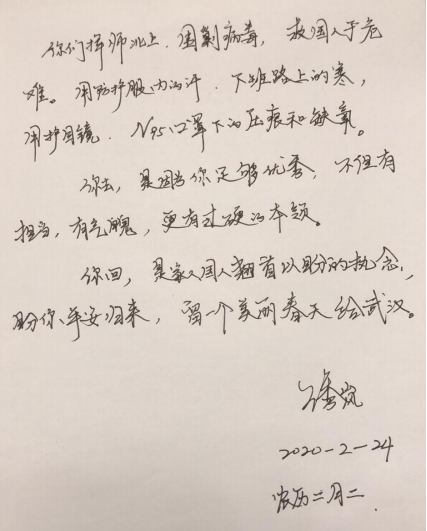 你们挥师北上，围剿病毒，救国人于危
难。用防护服内的汗，下班路上的寒，
用护目镜、N95口罩下的压痕和缺氧。
你去，是因为你足够优秀，不但有
担当，有气魄，更有过硬的本领。
你回，是家人国人翘首以盼的执念，
盼你平安归来，留一个美丽春天给武汉。
2020-2-24
农历二月二